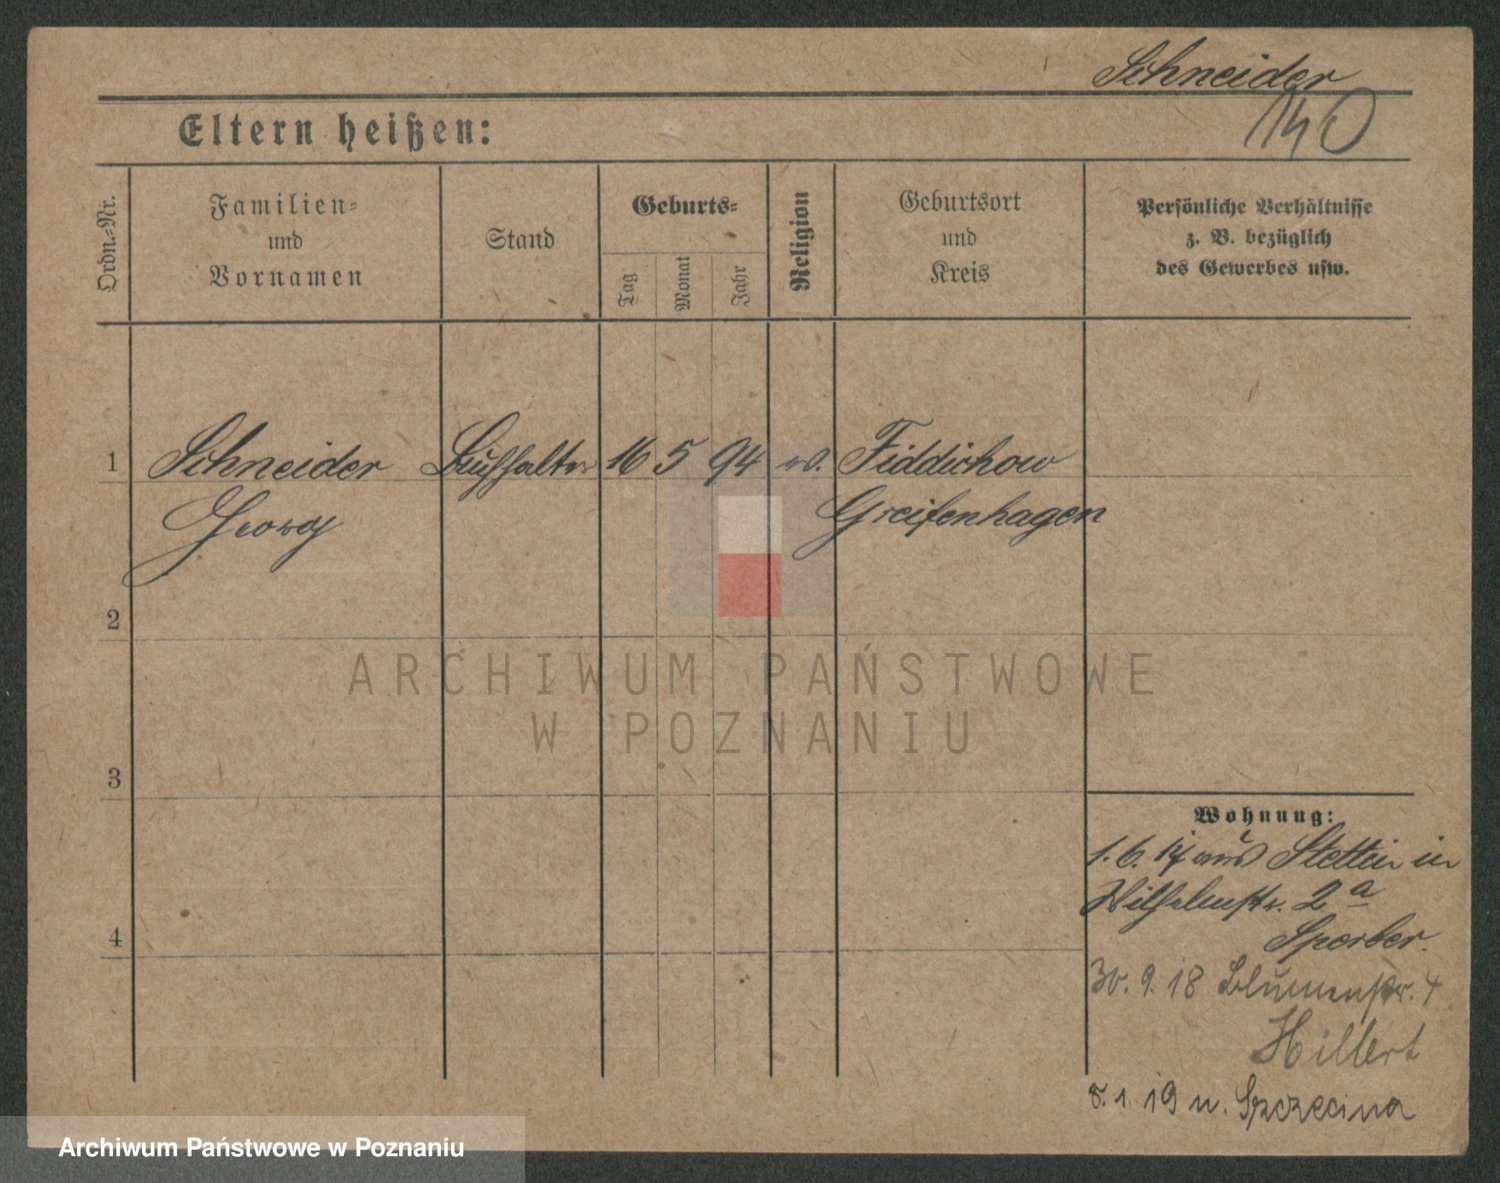 Schneider
140
Eltern heißen:
Ordn.-Nr.
Familien-
und
Vornamen
Stand
Geburts-
Tag
Monat
Jahr
Religion
Geburtsort
und
Kreis
Persönliche Verhältnisse
z. B. bezüglich
des Gewerbes usw.
1 Schneider Buchhalter 16 5 94 ev. Fiddichow
Georg Greifenhagen
2
ARCHIWUM PAŃSTWOWE
W POZNANIU
3
Wohnung:
1. 6. 17 aus Stettin in
Wilhelmstr. 2a
Sperber.
4
30. 9. 18 Blumenstr. 4
Hillert
8. 1. 19 n. Szczecina
Archiwum Państwowe w Poznaniu